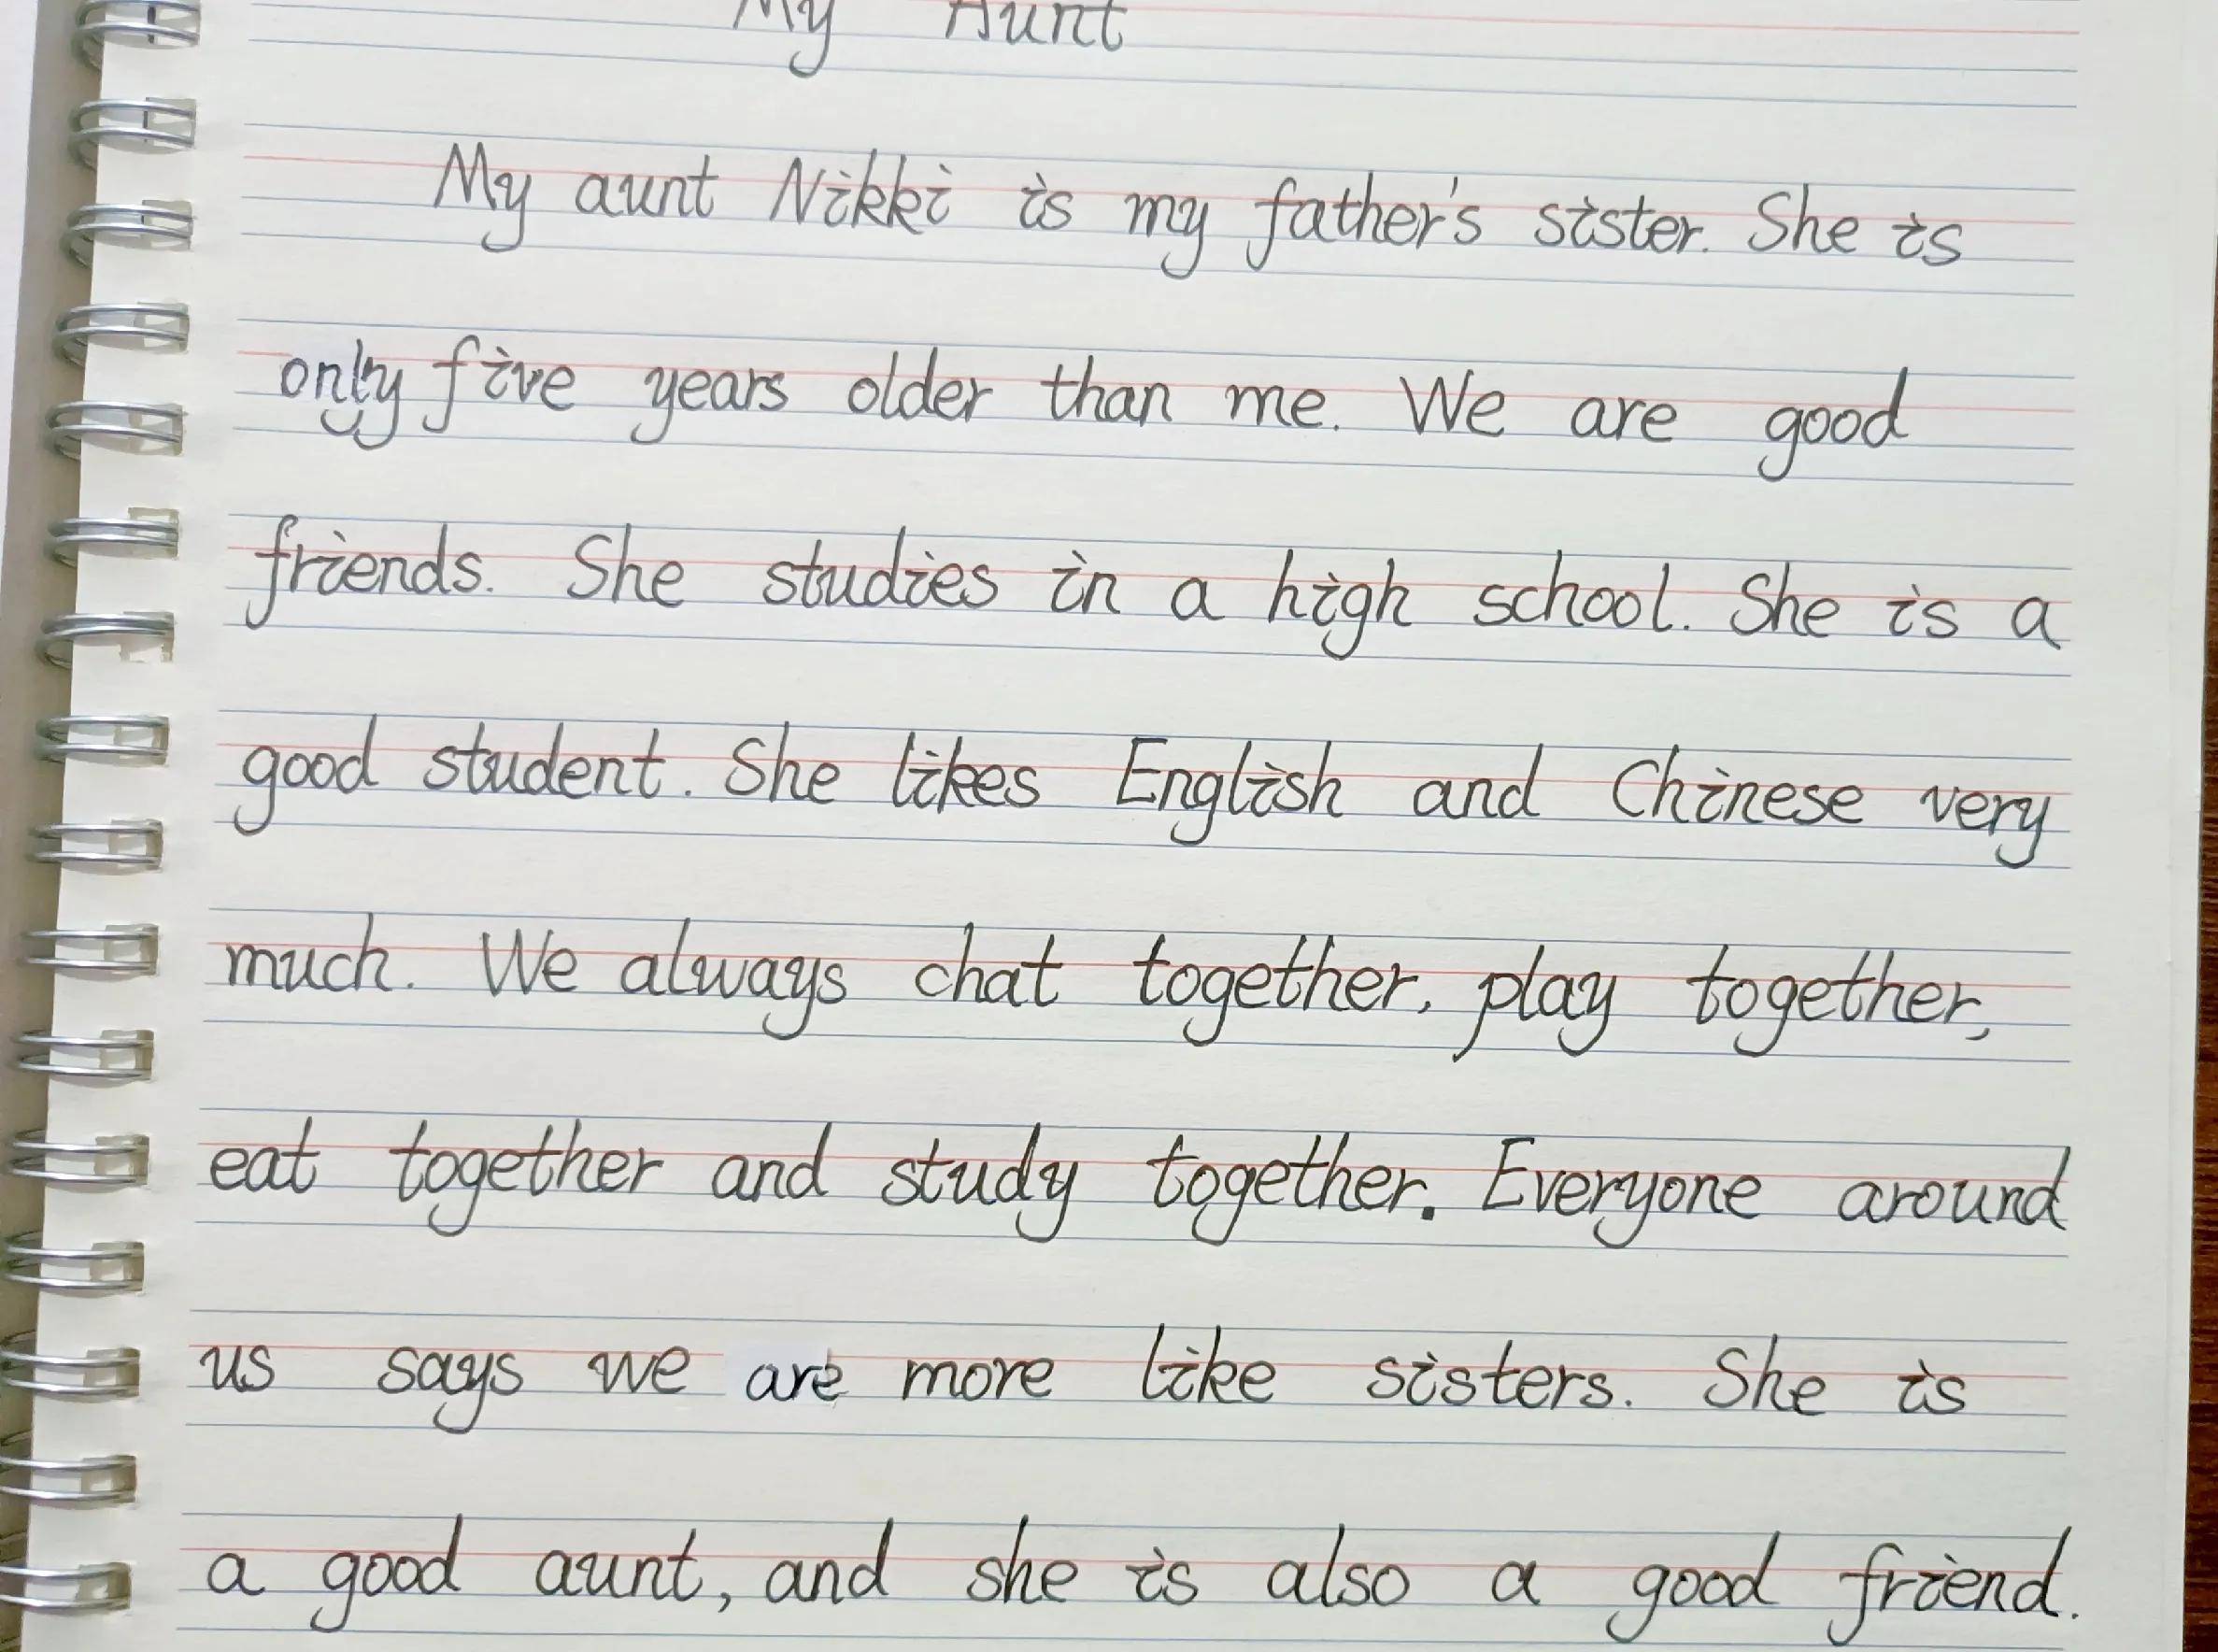 My Aunt
My aunt Nikki is my father's sister. She is
only five years older than me. We are good
friends. She studies in a high school. She is a
good student. She likes English and Chinese very
much. We always chat together, play together,
eat together and study together. Everyone around
us says we are more like sisters. She is
a good aunt, and she is also a good friend.